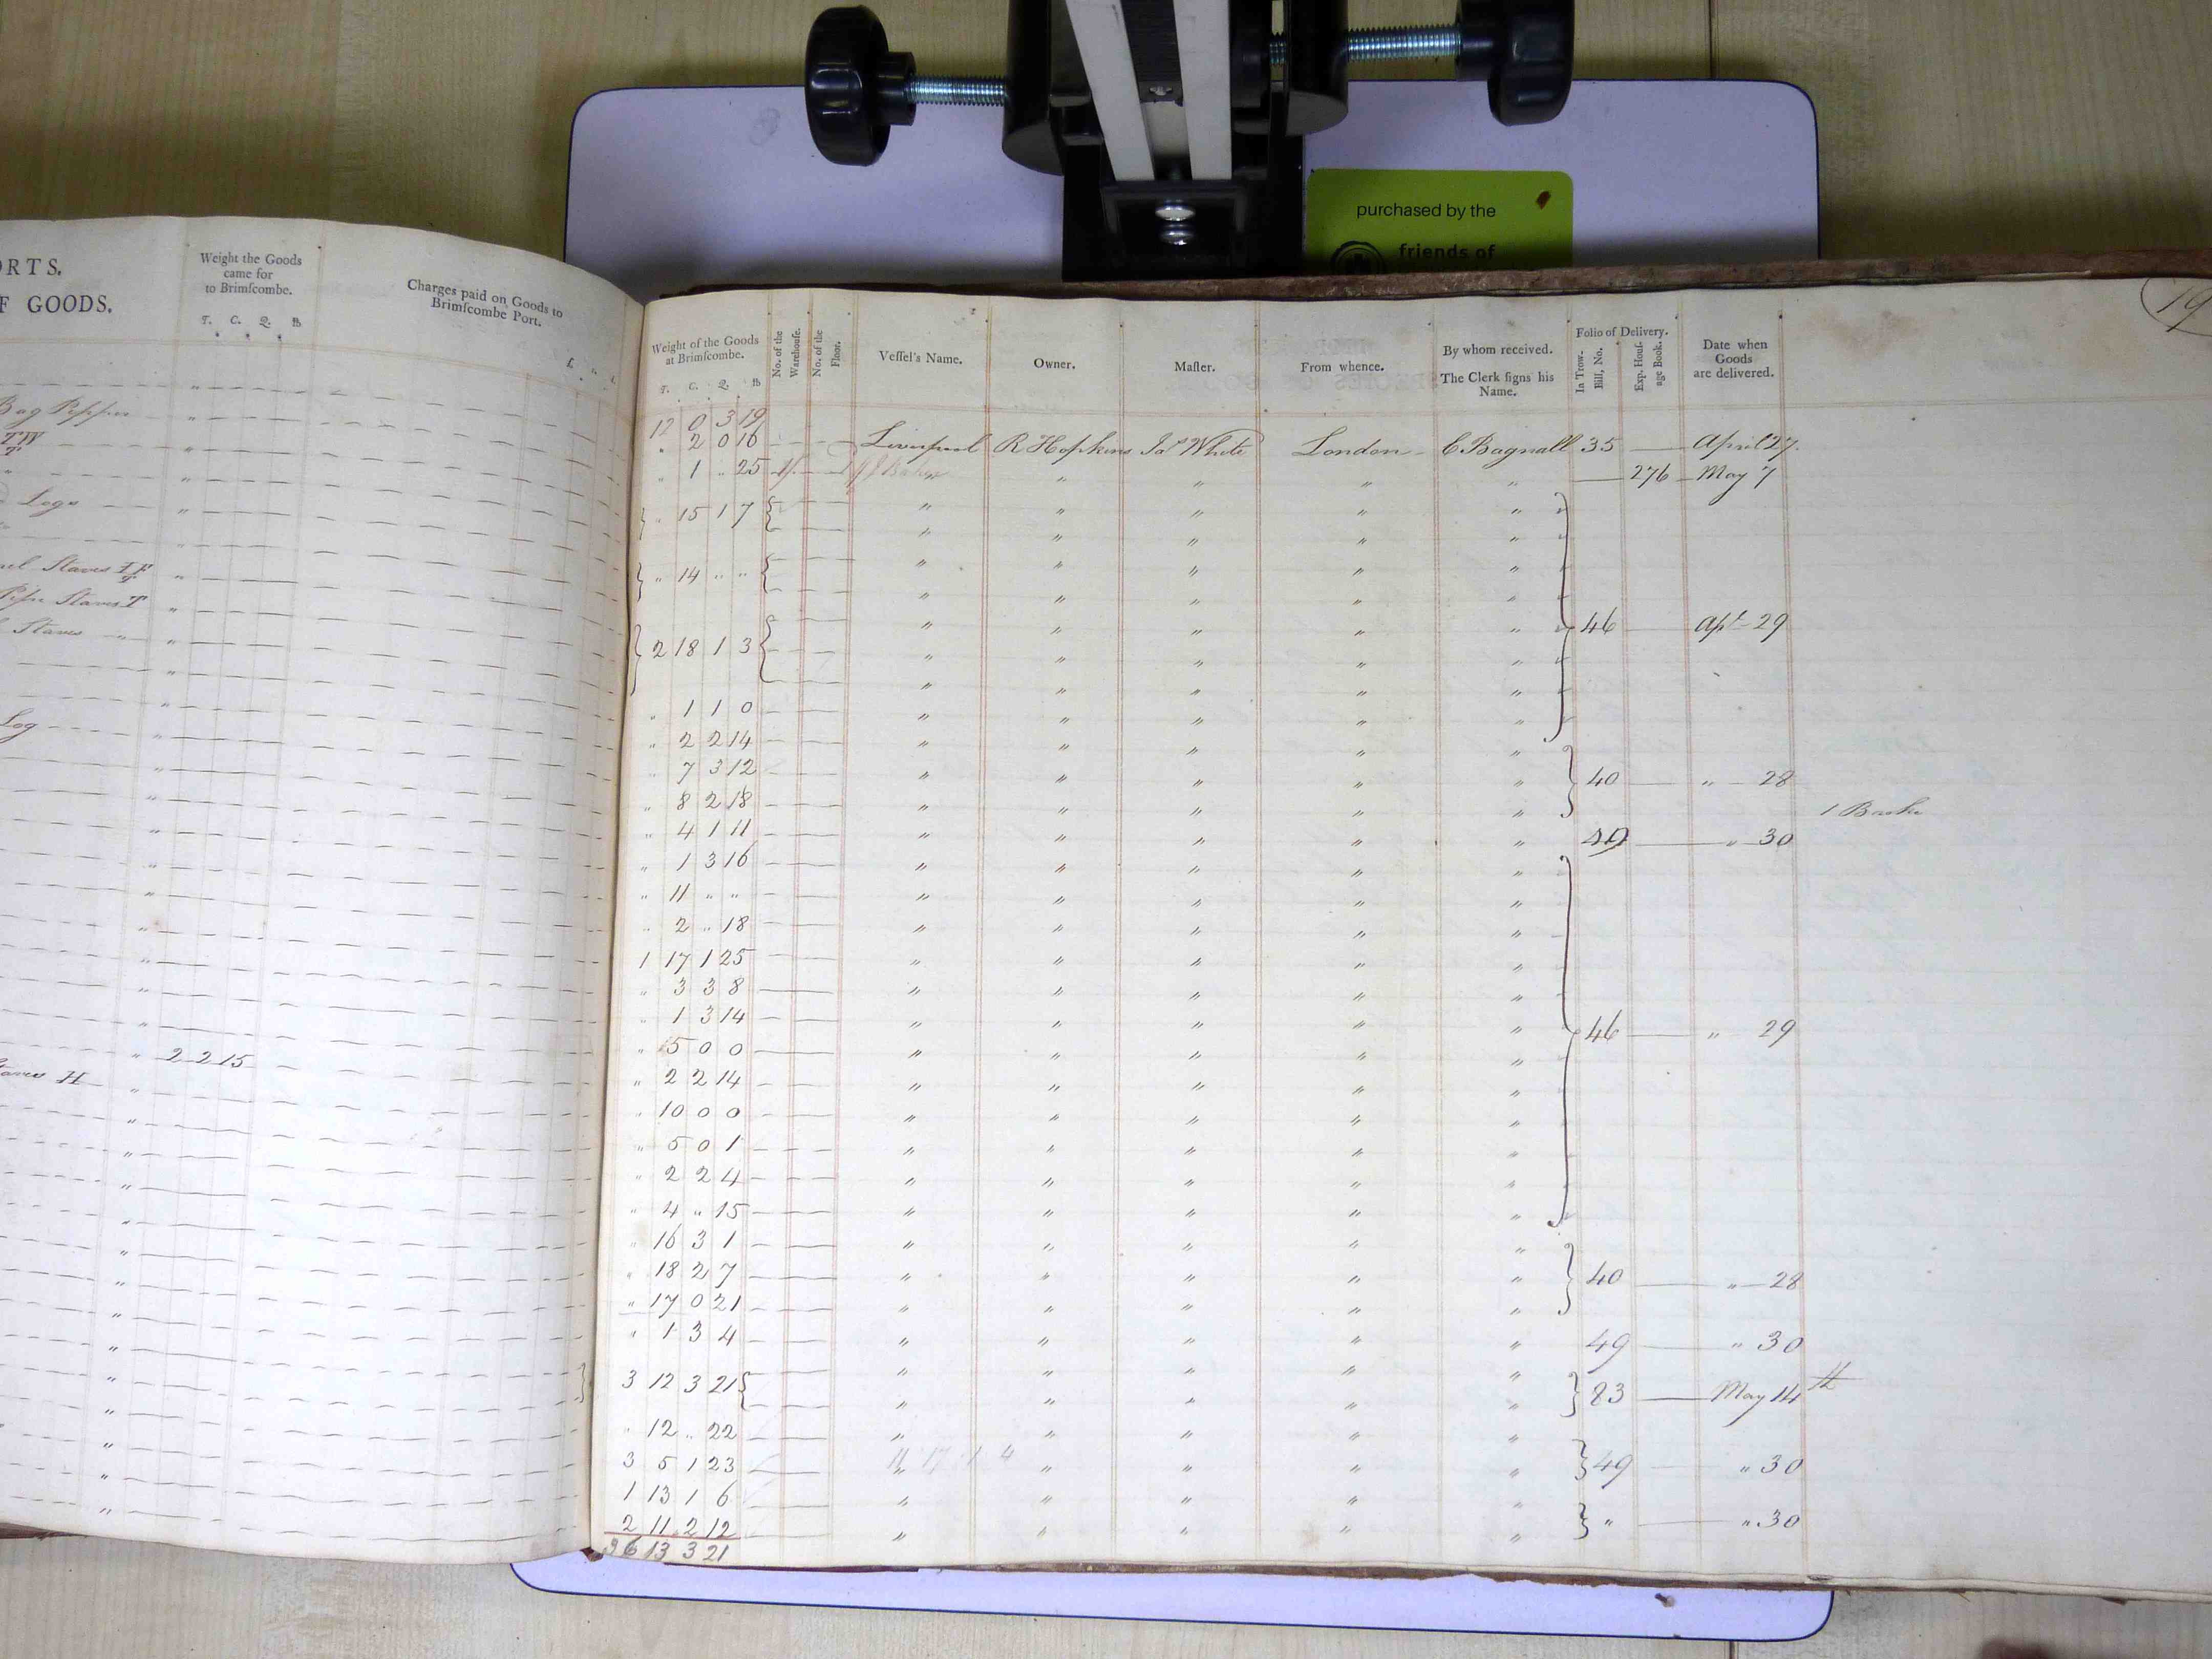 purchased by the
friends of
ORTS.
F GOODS.
Weight the Goods
came for
to Brimſcombe.
T. C. Q. lb
Charges paid on Goods to
Brimſcombe Port.
Bag Pepper
TW
Logs
Staves
Pipe Staves T
Staves
Log
" 2 2 15
Staves H
Weight of the Goods
at Brimſcombe.
T. C. Q. lb
No. of the
Warehouſe.
No. of the
Floor.
Veſſel's Name.
Owner.
Maſter.
From whence.
By whom received.
The Clerk ſigns his
Name.
Folio of Delivery.
In Trow-
Bill, No.
Exp. Houſ-
age Book.
Date when
Goods
are delivered.
12 0 3 19
" 2 0 16 Liverpool R Hopkins Jas White London C Bagnall 35 April 27.
" 1 " 25 " " " " 276 May 7
" 15 1 7 " " " " "
" " " " "
" 14 " " " " " " "
" " " " "
" " " " " 46 Apl 29
2 18 1 3 " " " " "
" " " " "
" 1 1 0 " " " " "
" 2 2 14 " " " " "
" 7 3 12 " " " " " 40 " 28
" 8 2 18 " " " " "
1 Baske
" 4 1 11 " " " " " 49 " 30
" 1 3 16 " " " " "
" 11 " " " " " " "
" 2 " 18 " " " " "
1 17 1 25 " " " " "
" 3 3 8 " " " " "
" 1 3 14 " " " " " 46 " 29
" 5 0 0 " " " " "
" 2 2 14 " " " " "
" 10 0 0 " " " " "
" 5 0 1 " " " " "
" 2 2 4 " " " " "
" 4 " 15 " " " " "
" 16 3 1 " " " " "
" 18 2 7 " " " " " 40 " 28
" 17 0 21 " " " " "
" 1 3 4 " " " " " 49 " 30
3 12 3 21 " " " " " 83 May 14th
" " " " "
" 12 " 22 " " " " "
3 5 1 23 11 17 1 4 " " " " " 49 " 30
1 13 1 6 " " " " "
2 11 2 12 " " " " " " " 30
36 13 3 21